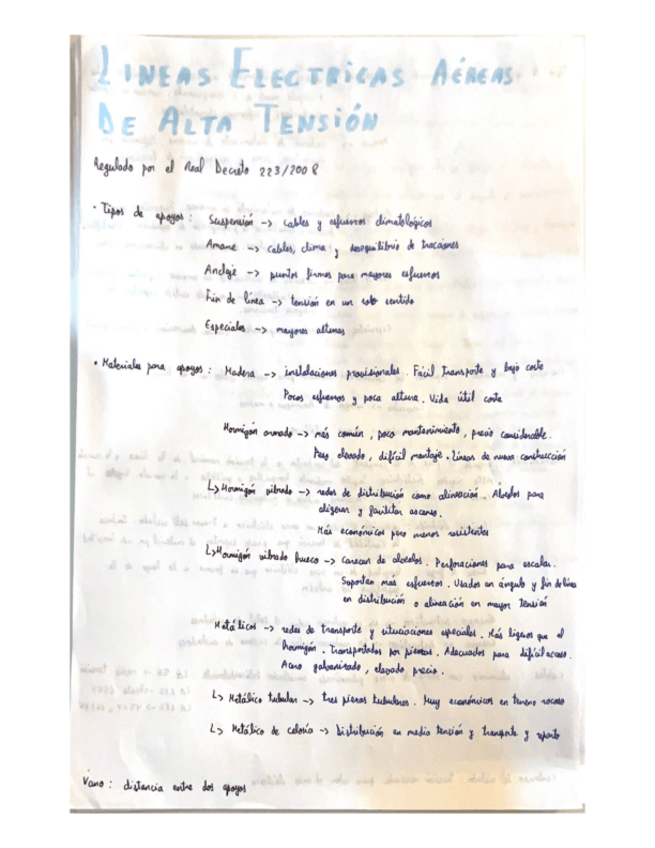 LINEAS ELECTRICAS AÉREAS
DE ALTA TENSIÓN
Regulado por el Real Decreto 223/2008
· Tipos de apoyos : Suspensión -> cables y esfuerzos climatológicos
Amarre -> cables, clima y desequilibrio de tracciones
Anclaje -> puntos firmes para mayores esfuerzos
Fin de línea -> tensión en un solo sentido
Especiales -> mayores alturas
· Materiales para apoyos : Madera -> instalaciones provisionales. Fácil transporte y bajo coste
Pocos esfuerzos y poca altura. Vida útil corta
Hormigón armado -> más común, poco mantenimiento, precio considerable.
Peso elevado, difícil montaje. Líneas de nueva construcción
L> Hormigón vibrado -> redes de distribución como alineación. Alveolos para
aligerar y facilitar ascenso.
Más económicos pero menos resistentes
L> Hormigón vibrado hueco -> carecen de alveolos. Perforaciones para escalar.
Soportan más esfuerzos. Usados en ángulo y fin de línea
en distribución o alineación en mayor tensión
Metálicos -> redes de transporte y situaciones especiales. Más ligeros que el
hormigón. Transportados por piezas. Adecuados para difícil acceso.
Acero galvanizado, elevado precio.
L> Metálico tubular -> tres piezas tubulares. Muy económicos en terreno rocoso
L> Metálico de celosía -> Distribución en media tensión y transporte y reparto
Vano : distancia entre dos apoyos